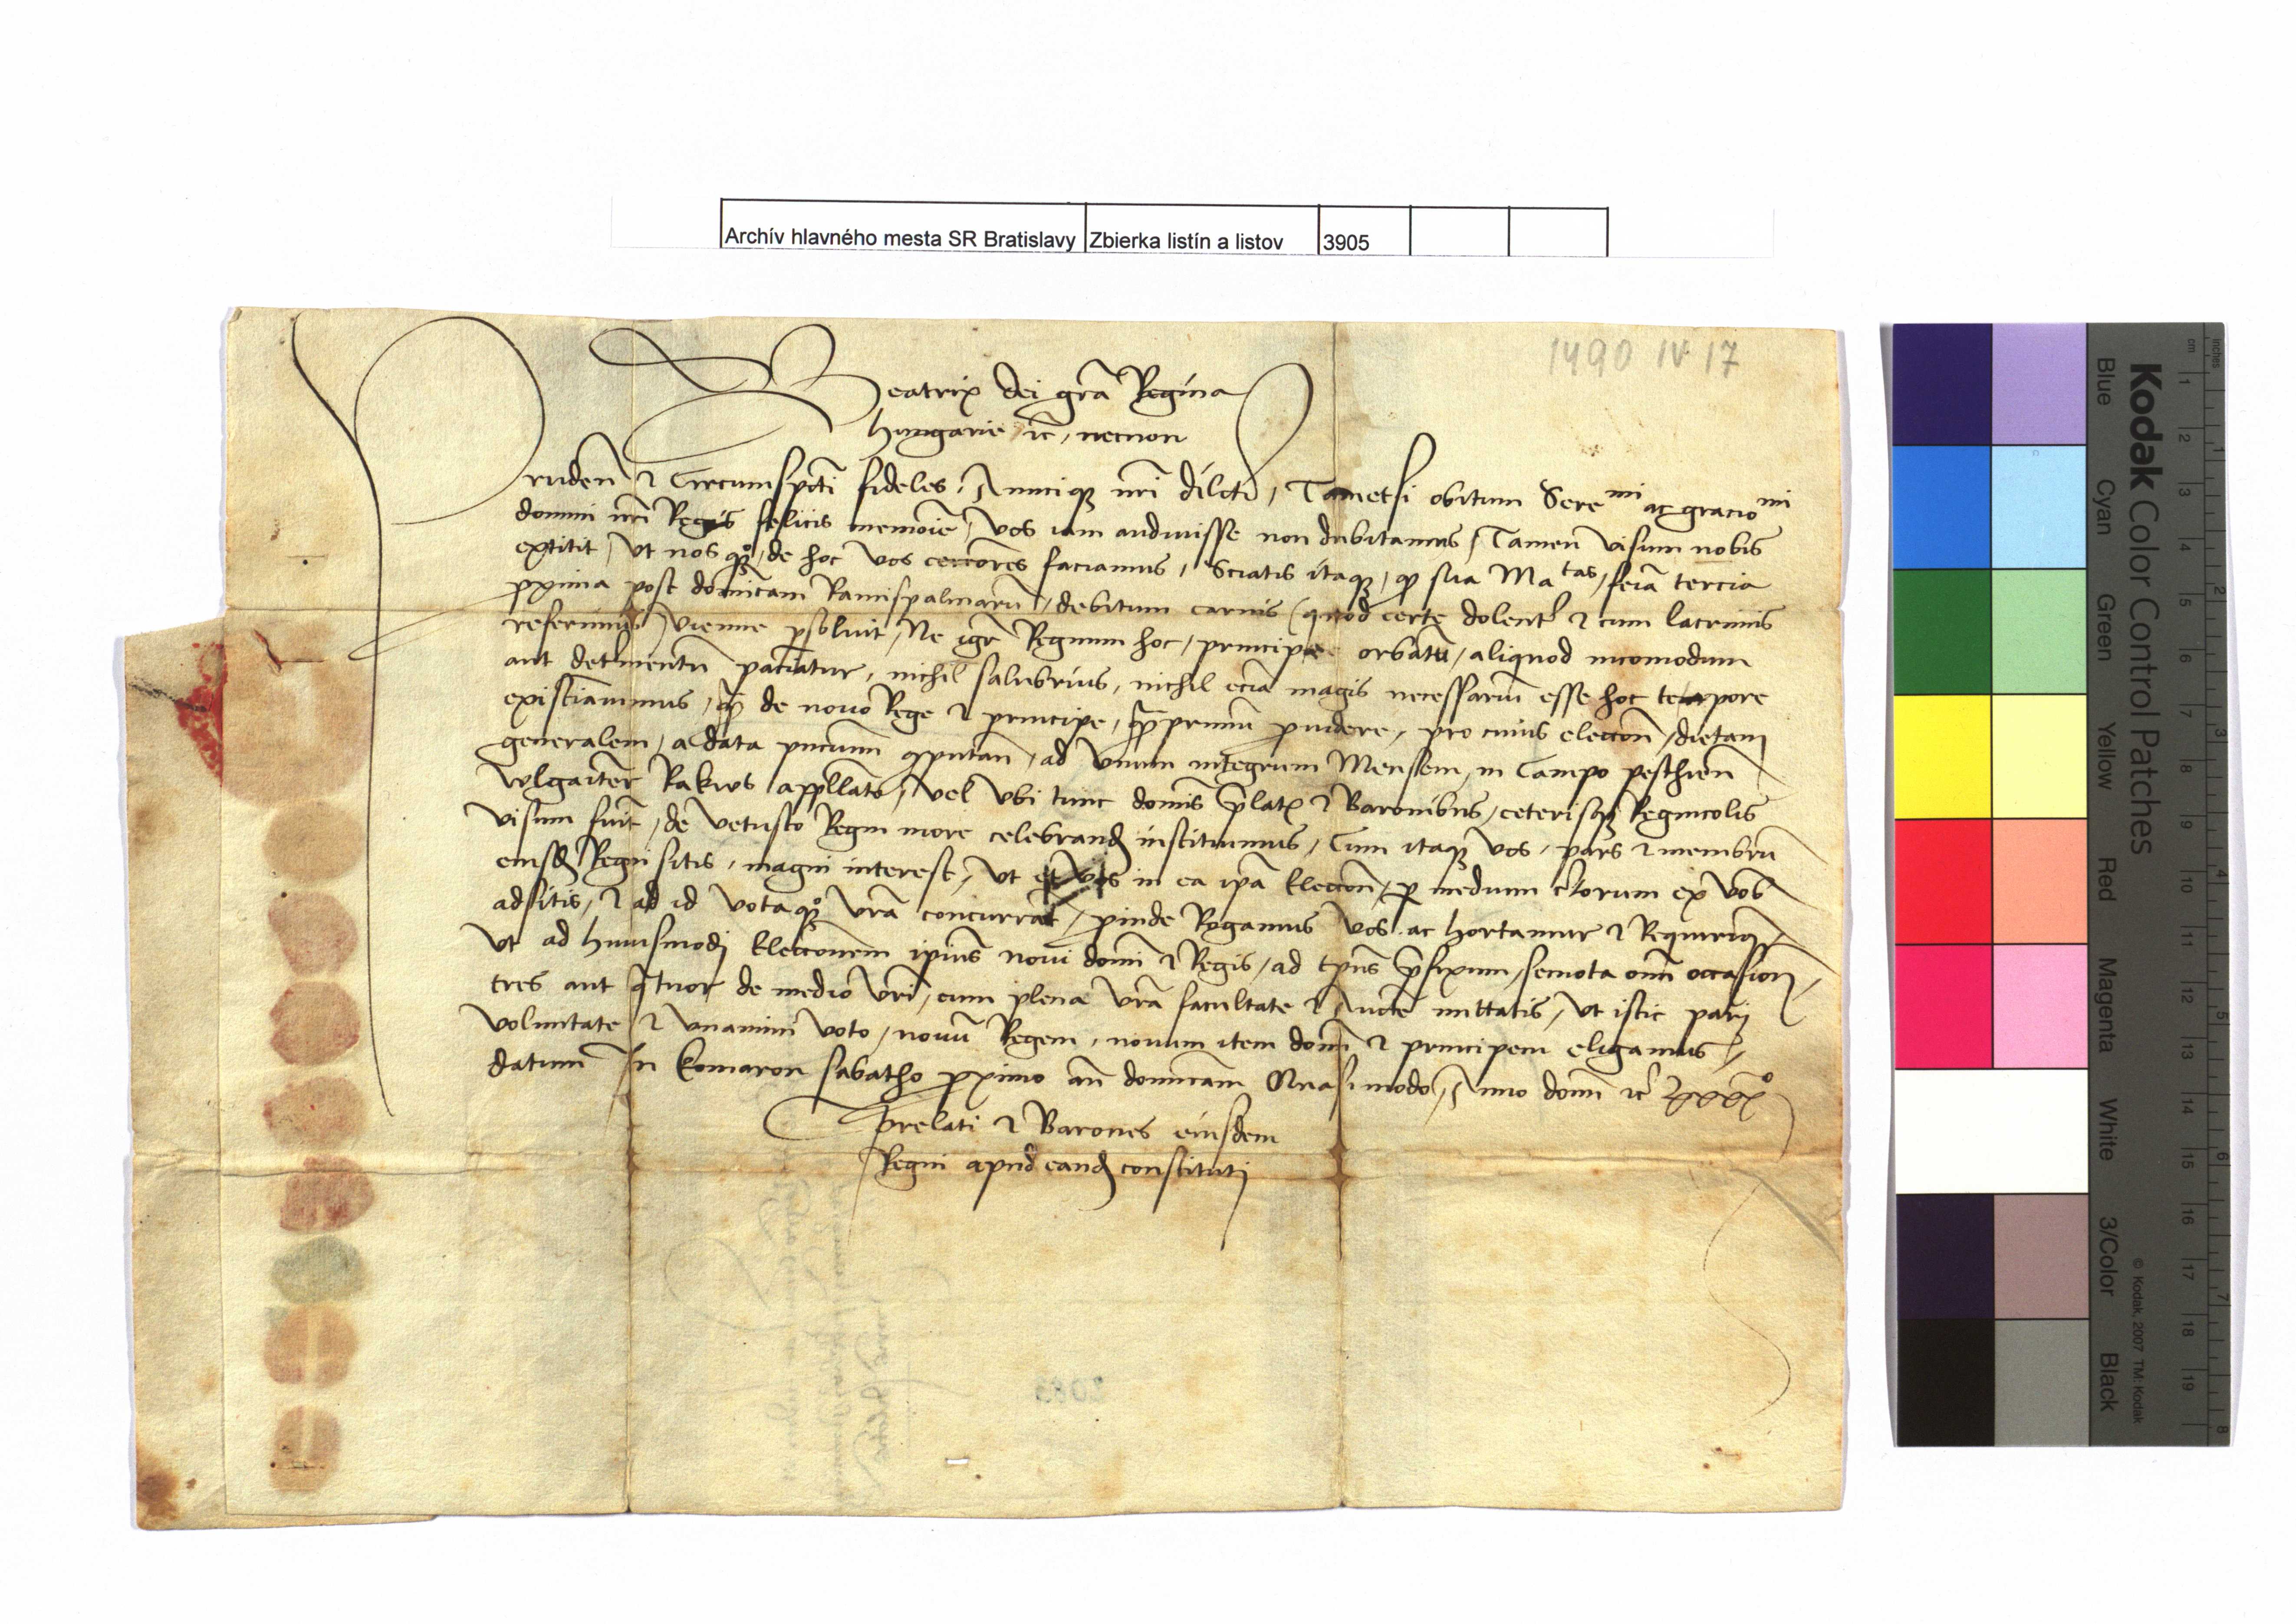 Archív hlavného mesta SR Bratislavy Zbierka listín a listov 3905
1490 IV 17
Beatrix dei gra Regina
hungarie ic, necnon
Pruden ⁊ Circumspcti fideles, Amiciqꝫ nri dilcti, Tametsi obitum Sereᵐⁱ ac gracioᵐⁱ
domini nri Regis felicis memoie, vos iam audiuisse non dubitamus, Tamen visum nobis
extitit, vt nos qꝫ, de hoc vos cerciores faciamus, Sciatis itaqꝫ, ꝙ sua Maᵗᵃˢ, feia tercia
ꝓxima post domicam Ramispalmaru, debitum carnis (quod certe dolent ⁊ cum lacrimis
referimus) vienne ꝑsoluit, Ne igr Regnum hoc, principe orbatu, aliquod incomodum
aut detmentu paciatur, nichil salubrius, nichil ecia magis necessariu esse hoc tempore
existimauimus, ꝙ de nouo Rege ⁊ principe, ꝙprimu ꝓuidere, pro cuius eleccion, dietam
generalem, a data pncium ꝯputan, ad vnum integrum Mensem, in Campo pesthien
wlgariter Rakws appllato, vel vbi tunc domis platꝭ ⁊ Baronibus, ceterisqꝫ Regnicolis
visum fuit, de vetusto Regni more celebrand instituimus, Cum itaqꝫ vos, pars ⁊ membru
eiusd Regni sitis, magni interest, vt et vos in ea ipa Eleccion, ꝑ medium ctorum ex vob
adsitis, ⁊ ad id vota qꝫ vra concurrat, ꝓinde Rogamus vos ac hortamur ⁊ Requirimꝰ
vt ad huiusmodj Eleccionem ipius noui domi ⁊ Regis, ad tpus pfixum, semota omi occasion,
tres aut qtuor de medio vri, cum plena vra facultate ⁊ Aucte mittatis, vt istic parj
voluntate ⁊ vnanimi voto, nouu Regem, nouum item dom ⁊ principem eligamus,
datum In Komaron sabatho ꝓximo an domicam Quasimodo, Anno domi ic lxxxxº
Prelati ⁊ Barones eiusdem
Regni apud eand constitutj
2083